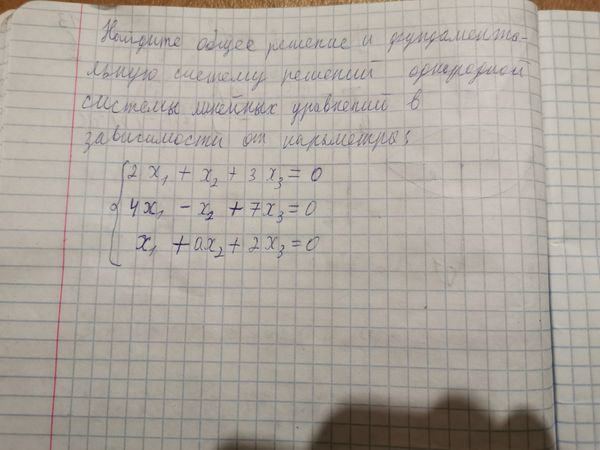 Найдите общее решение и фундамента-
льную систему решений однородной
системы линейных уравнений в
зависимости от параметра:
2x₁ + x₂ + 3x₃ = 0
4x₁ - x₂ + 7x₃ = 0
x₁ + ax₂ + 2x₃ = 0